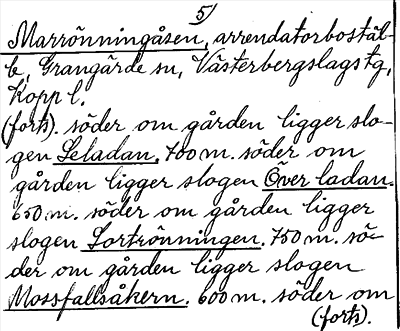 5)
Marrönningåsen, arrendatorbostäl-
le, Grangärde sn, Västerbergslags tg,
Kopp l.
(forts). söder om gården ligger slo-
gen Leladan. 700 m. söder om
gården ligger slogen Över ladan.
650 m. söder om gården ligger
slogen Lortrönningen. 750 m. sö-
der om gården ligger slogen
Mossfallsåkern. 600 m. söder om
(forts).